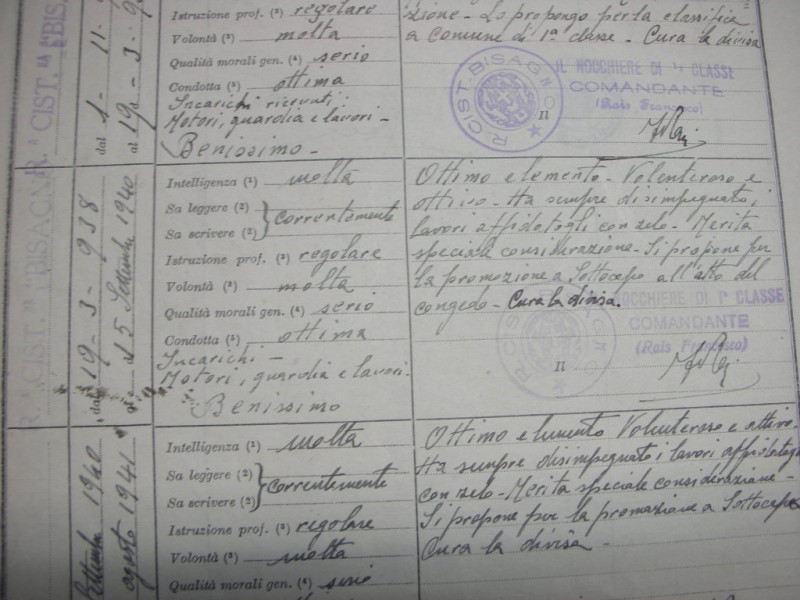 R.ª CIST.ª "BISAGNO"
R.ª CIST.ª "BIS
dal 1 - 11 - 9
al 19 - 3 - 9
Istruzione prof. (3) regolare
Volontà (3) molta
Qualità morali gen. (4) serio
Condotta (5) ottima
Incarichi ricevuti
Motori, guardia e lavori -
Benissimo -
zione - Lo propongo per la classifica
a comune di 1ª classe - Cura la divisa
R. CIST. BISAGNO
IL NOCCHIERE DI 1ª CLASSE
COMANDANTE
(Rais Francesco)
dal 19 - 3 - 938
al 15 Settembre 1940
Intelligenza (1) molta
Sa leggere (2)
Sa scrivere (2) } correntemente
Istruzione prof. (3) regolare
Volontà (3) molta
Qualità morali gen. (4) serio
Condotta (5) ottima
Incarichi -
Motori, guardia e lavori.
Benissimo
Ottimo elemento - Volenteroso e
attivo - Ha sempre disimpegnato i
lavori affidatogli con zelo - Merita
speciale considerazione - Si propone per
la promozione a Sottocapo all'atto del
congedo - Cura la divisa.
NOCCHIERE DI 1ª CLASSE
COMANDANTE
(Rais Francesco)
Settembre 1940
agosto 1941
Intelligenza (1) molta
Sa leggere (2)
Sa scrivere (2) } correntemente
Istruzione prof. (3) regolare
Volontà (3) molta
Qualità morali gen. (4) serio
Ottimo elemento Volenteroso e attivo.
Ha sempre disimpegnato i lavori affidatogli
con zelo - Merita speciale considerazione -
Si propone per la promozione a Sottocapo
Cura la divisa -